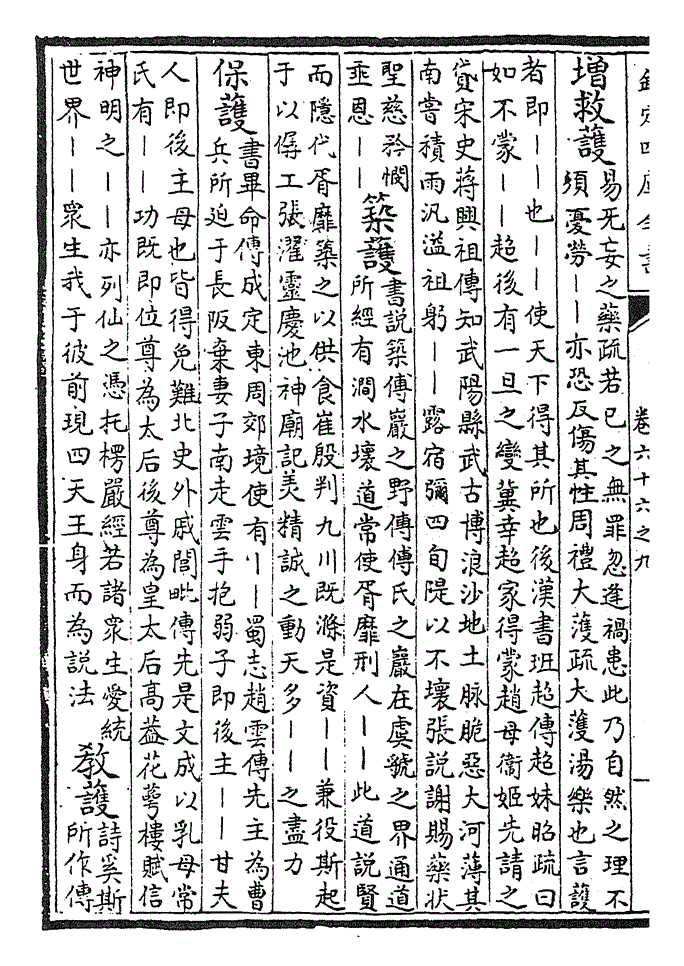 欽定四庫全書 卷六十六之九
増救護
易无妄之藥疏若已之無罪忽逢禍患此乃自然之理不
須憂勞丨丨亦恐反傷其性周禮大䕶疏大䕶湯樂也言護
者即丨丨也丨丨使天下得其所也後漢書班超傳超妹昭疏曰
如不蒙丨丨超後有一旦之變冀幸超家得蒙趙母衞姬先請之
貸宋史蔣興祖傳知武陽縣武古博浪沙地土脉脆惡大河薄其
南嘗積雨汎溢祖躬丨丨露宿彌四旬隄以不壞張說謝賜藥狀
聖慈矜憫
亟恩丨丨
築護
書說築傅巖之野傳傅氏之巖在虞虢之界通道
所經有澗水壞道常使胥靡刑人丨丨此道說賢
而隱代胥靡築之以供食崔殷判九川既滌是資丨丨兼役斯起
于以僝工張濯靈慶池神廟記美精誠之動天多丨丨之盡力
保護
書畢命傳成定東周郊境使有丨丨蜀志趙雲傳先主為曹
兵所迫于長阪棄妻子南走雲手抱弱子即後主丨丨甘夫
人即後主母也皆得免難北史外戚閭毗傳先是文成以乳母常
氏有丨丨功既即位尊為太后後尊為皇太后高葢花萼樓賦信
神明之丨丨亦列仙之憑托楞嚴經若諸衆生愛統
世界丨丨衆生我于彼前現四天王身而為說法
教護
詩奚斯
所作傳